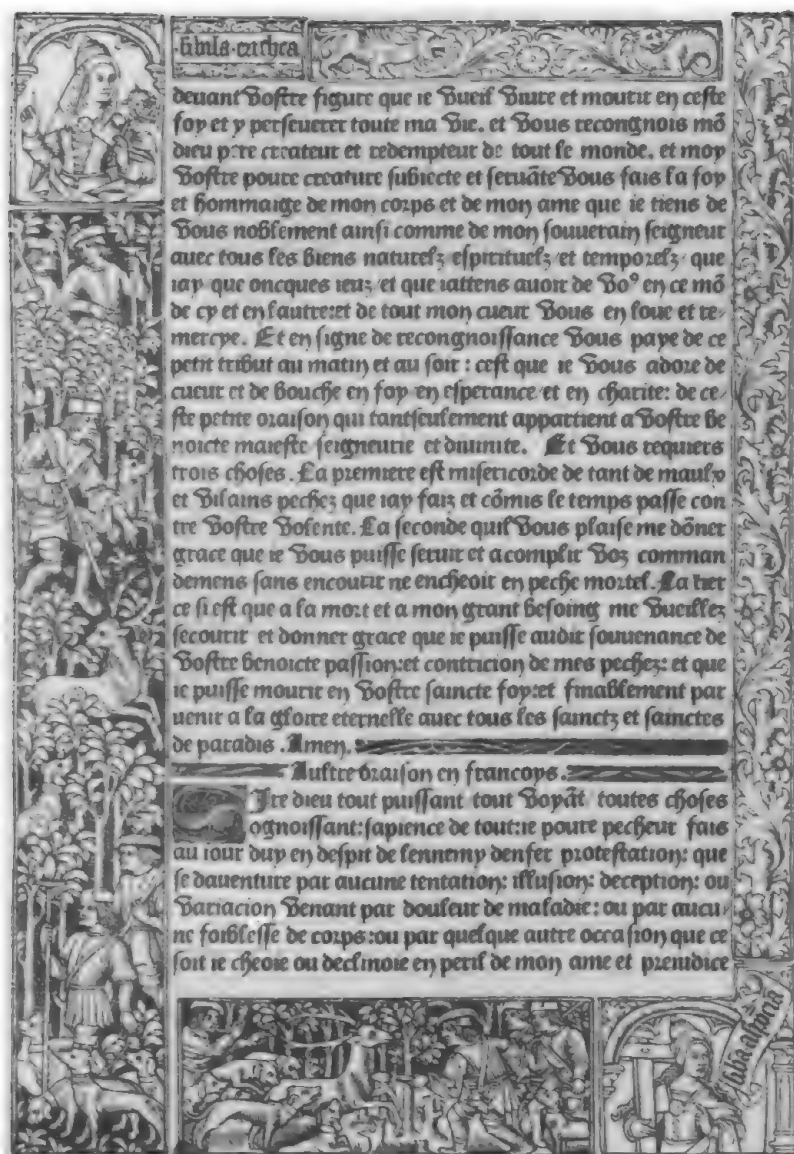 ·sibila·erithea
deuant Vostre figure que ie Vueil Viure et mourir en ceste
foy et y perseuerer toute ma Vie. et Vous recongnois mõ
dieu pere createur et redempteur de tout le monde. et moy
Vostre poure creature subiecte et seruãte Vous fais la foy
et hommaige de mon corps et de mon ame que ie tiens de
Vous noblement ainsi comme de mon souuerain seigneur
auec tous les biens naturelz espirituelz et temporelz que
iay que oncques ieuz et que iattens auoir de Voꝰ en ce mõ
de cy et en lautre:et de tout mon cueur Vous en loue et re-
mercye. Et en signe de recongnoissance Vous paye de ce
petit tribut au matin et au soir : cest que ie Vous adore de
cueur et de bouche en foy en esperance et en charite: de ce-
ste petite oraison qui tantseulement appartient a Vostre be
noicte maieste seigneurie et diuinite. Et Vous requiers
trois choses. La premiere est misericorde de tant de maulx
et Vilains pechez que iay faiz et cõmis le temps passe con
tre Vostre Volente. La seconde quil Vous plaise me dõner
grace que ie Vous puisse seruir et acomplir Voz comman
demens sans encourir ne encheoir en peche mortel. La tier
ce si est que a la mort et a mon grant besoing me Vueillez
secourir et donner grace que ie puisse auoir souuenance de
Vostre benoicte passion:et contricion de mes pechez: et que
ie puisse mourir en Vostre saincte foy:et finablement par
uenir a la gloire eternelle auec tous les sainctz et sainctes
de paradis . Amen.
Aultre oraison en francoys.
Sire dieu tout puissant tout Voyãt toutes choses
ognoissant:sapience de tout:ie poure pecheur fais
au iour duy en despit de lennemy denfer protestation: que
se dauenture par aucune tentation: illusion: deception: ou
Variacion Venant par douleur de maladie: ou par aucu-
ne foiblesse de corps:ou par quelque autre occasion que ce
soit ie cheoie ou declinoie en peril de mon ame et preiudice